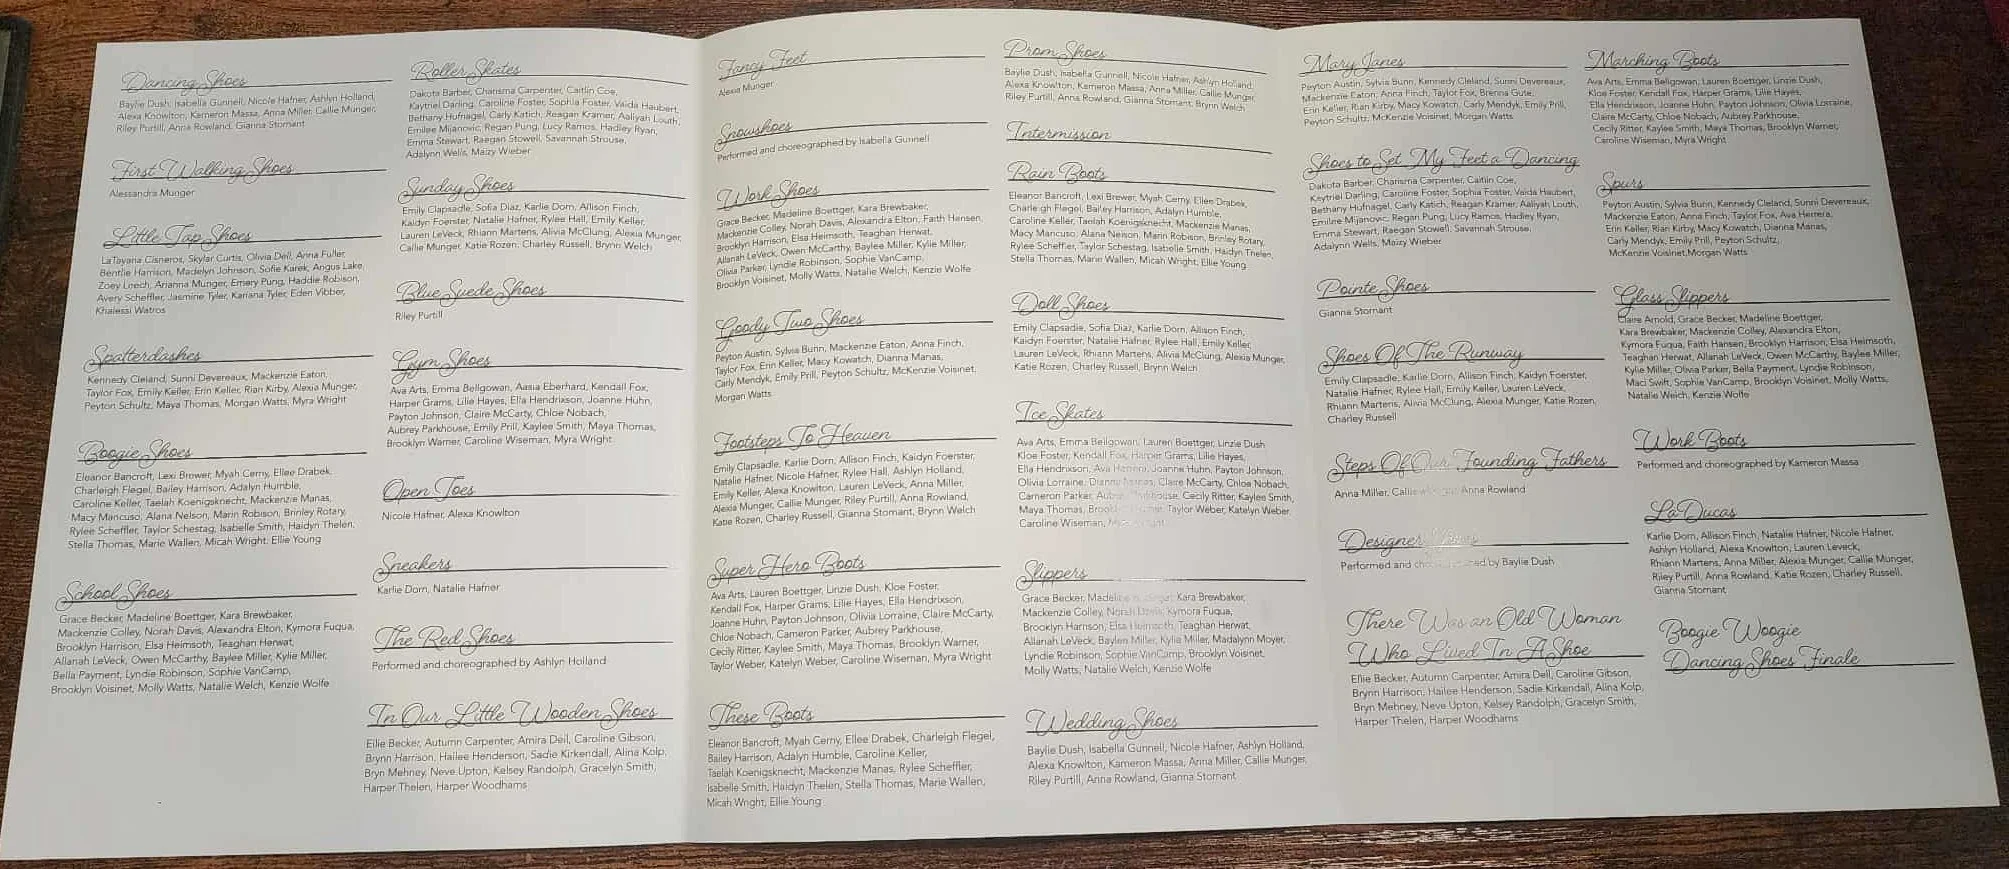 Dancing Shoes
Baylie Dush, Isabella Gunnell, Nicole Hafner, Ashlyn Holland,
Alexa Knowlton, Kameron Massa, Anna Miller, Callie Munger,
Riley Purtill, Anna Rowland, Gianna Stornant
First Walking Shoes
Alessandra Munger
Little Tap Shoes
LaTayana Cisneros, Skylar Curtis, Olivia Deil, Anna Fuller,
Bentlie Harrison, Madelyn Johnson, Sofie Karek, Angus Lake,
Zoey Lorech, Arianna Munger, Emery Pung, Haddie Robison,
Avery Scheffler, Jasmine Tyler, Kariana Tyler, Eden Vibber,
Khalessi Watros
Spatterdashes
Kennedy Cleland, Sunni Devereaux, Mackenzie Eaton,
Taylor Fox, Emily Keller, Erin Keller, Rian Kirby, Alexia Munger,
Peyton Schultz, Maya Thomas, Morgan Watts, Myra Wright
Boogie Shoes
Eleanor Bancroft, Lexi Brewer, Myah Cerny, Ellee Drabek,
Charleigh Flegel, Bailey Harrison, Adalyn Humble,
Caroline Keller, Taelah Koenigsknecht, Mackenzie Manas,
Macy Mancuso, Alana Nelson, Marin Robison, Brinley Rotary,
Rylee Scheffler, Taylor Schestag, Isabelle Smith, Haidyn Thelen,
Stella Thomas, Marie Wallen, Micah Wright. Ellie Young
School Shoes
Grace Becker, Madeline Boettger, Kara Brewbaker,
Mackenzie Colley, Norah Davis, Alexandra Elton, Kymora Fuqua,
Brooklyn Harrison, Elsa Heimsoth, Teaghan Herwat,
Allanah LeVeck, Owen McCarthy, Baylee Miller, Kylie Miller,
Bella Payment, Lyndie Robinson, Sophie VanCamp,
Brooklyn Voisinet, Molly Watts, Natalie Welch, Kenzie Wolfe
Roller Skates
Dakota Barber, Charisma Carpenter, Caitlin Coe,
Kaytriel Darling, Caroline Foster, Sophia Foster, Vaida Haubert,
Bethany Hufnagel, Carly Katich, Reagan Kramer, Aaliyah Louth,
Emilee Mijanovic, Regan Pung, Lucy Ramos, Hadley Ryan,
Emma Stewart, Raegan Stowell, Savannah Strouse,
Adalynn Wells, Maizy Wieber
Sunday Shoes
Emily Clapsadle, Sofia Diaz, Karlie Dorn, Allison Finch,
Kaidyn Foerster, Natalie Hafner, Rylee Hall, Emily Keller,
Lauren LeVeck, Rhiann Martens, Alivia McClung, Alexia Munger,
Callie Munger, Katie Rozen, Charley Russell, Brynn Welch
Blue Suede Shoes
Riley Purtill
Gym Shoes
Ava Arts, Emma Bellgowan, Aasia Eberhard, Kendall Fox,
Harper Grams, Lilie Hayes, Ella Hendrixson, Joanne Huhn,
Payton Johnson, Claire McCarty, Chloe Nobach,
Aubrey Parkhouse, Emily Prill, Kaylee Smith, Maya Thomas,
Brooklyn Warner, Caroline Wiseman, Myra Wright
Open Toes
Nicole Hafner, Alexa Knowlton
Sneakers
Karlie Dorn, Natalie Hafner
The Red Shoes
Performed and choreographed by Ashlyn Holland
In Our Little Wooden Shoes
Ellie Becker, Autumn Carpenter, Amira Deil, Caroline Gibson,
Brynn Harrison, Hailee Henderson, Sadie Kirkendall, Alina Kolp,
Bryn Mehney, Neve Upton, Kelsey Randolph, Gracelyn Smith,
Harper Thelen, Harper Woodhams
Fancy Feet
Alexia Munger
Snowshoes
Performed and choreographed by Isabella Gunnell
Work Shoes
Grace Becker, Madeline Boettger, Kara Brewbaker,
Mackenzie Colley, Norah Davis, Alexandra Elton, Faith Hansen,
Brooklyn Harrison, Elsa Heimsoth, Teaghan Herwat,
Allanah LeVeck, Owen McCarthy, Baylee Miller, Kylie Miller,
Olivia Parker, Lyndie Robinson, Sophie VanCamp,
Brooklyn Voisinet, Molly Watts, Natalie Welch, Kenzie Wolfe
Goody Two Shoes
Peyton Austin, Sylvia Bunn, Mackenzie Eaton, Anna Finch,
Taylor Fox, Erin Keller, Macy Kowatch, Dianna Manas,
Carly Mendyk, Emily Prill, Peyton Schultz, McKenzie Voisinet,
Morgan Watts
Footsteps To Heaven
Emily Clapsadle, Karlie Dorn, Allison Finch, Kaidyn Foerster,
Natalie Hafner, Nicole Hafner, Rylee Hall, Ashlyn Holland,
Emily Keller, Alexa Knowlton, Lauren LeVeck, Anna Miller,
Alexia Munger, Callie Munger, Riley Purtill, Anna Rowland,
Katie Rozen, Charley Russell, Gianna Stornant, Brynn Welch
Super Hero Boots
Ava Arts, Lauren Boettger, Linzie Dush, Kloe Foster,
Kendall Fox, Harper Grams, Lilie Hayes, Ella Hendrixson,
Joanne Huhn, Payton Johnson, Olivia Lorraine, Claire McCarty,
Chloe Nobach, Cameron Parker, Aubrey Parkhouse,
Cecily Ritter, Kaylee Smith, Maya Thomas, Brooklyn Warner,
Taylor Weber, Katelyn Weber, Caroline Wiseman, Myra Wright
These Boots
Eleanor Bancroft, Myah Cerny, Ellee Drabek, Charleigh Flegel,
Bailey Harrison, Adalyn Humble, Caroline Keller,
Taelah Koenigsknecht, Mackenzie Manas, Rylee Scheffler,
Isabelle Smith, Haidyn Thelen, Stella Thomas, Marie Wallen,
Micah Wright, Ellie Young
Prom Shoes
Baylie Dush, Isabella Gunnell, Nicole Hafner, Ashlyn Holland,
Alexa Knowlton, Kameron Massa, Anna Miller, Callie Munger,
Riley Purtill, Anna Rowland, Gianna Stornant, Brynn Welch
Intermission
Rain Boots
Eleanor Bancroft, Lexi Brewer, Myah Cerny, Ellee Drabek,
Charleigh Flegel, Bailey Harrison, Adalyn Humble,
Caroline Keller, Taelah Koenigsknecht, Mackenzie Manas,
Macy Mancuso, Alana Nelson, Marin Robison, Brinley Rotary,
Rylee Scheffler, Taylor Schestag, Isabelle Smith, Haidyn Thelen,
Stella Thomas, Marie Wallen, Micah Wright, Ellie Young
Doll Shoes
Emily Clapsadle, Sofia Diaz, Karlie Dorn, Allison Finch,
Kaidyn Foerster, Natalie Hafner, Rylee Hall, Emily Keller,
Lauren LeVeck, Rhiann Martens, Alivia McClung, Alexia Munger,
Katie Rozen, Charley Russell, Brynn Welch
Ice Skates
Ava Arts, Emma Bellgowan, Lauren Boettger, Linzie Dush
Kloe Foster, Kendall Fox, Harper Grams, Lilie Hayes,
Ella Hendrixson, Ava Herrera, Joanne Huhn, Payton Johnson,
Olivia Lorraine, Dianna Manas, Claire McCarty, Chloe Nobach,
Cameron Parker, Aubrey Parkhouse, Cecily Ritter, Kaylee Smith,
Maya Thomas, Taylor Weber, Katelyn Weber
Caroline Wiseman, Myra Wright
Slippers
Grace Becker, Madeline Boettger, Kara Brewbaker,
Mackenzie Colley, Norah Davis, Kymora Fuqua,
Brooklyn Harrison, Elsa Heimsoth, Teaghan Herwat,
Allanah LeVeck, Baylen Miller, Kylie Miller, Madalynn Moyer,
Lyndie Robinson, Sophie VanCamp, Brooklyn Voisinet,
Molly Watts, Natalie Welch, Kenzie Wolfe
Wedding Shoes
Baylie Dush, Isabella Gunnell, Nicole Hafner, Ashlyn Holland,
Alexa Knowlton, Kameron Massa, Anna Miller, Callie Munger,
Riley Purtill, Anna Rowland, Gianna Stornant
Mary Janes
Peyton Austin, Sylvia Bunn, Kennedy Cleland, Sunni Devereaux,
Mackenzie Eaton, Anna Finch, Taylor Fox, Brenna Gute,
Erin Keller, Rian Kirby, Macy Kowatch, Carly Mendyk, Emily Prill,
Peyton Schultz, McKenzie Voisinet, Morgan Watts
Shoes to Set My Feet a Dancing
Dakota Barber, Charisma Carpenter, Caitlin Coe,
Keytriel Darling, Caroline Foster, Sophia Foster, Vaida Haubert,
Bethany Hufnagel, Carly Katich, Reagan Kramer, Aaliyah Louth,
Emilee Mijanovic, Regan Pung, Lucy Ramos, Hadley Ryan,
Emma Stewart, Raegan Stowell, Savannah Strouse,
Adalynn Wells, Maizy Wieber
Pointe Shoes
Gianna Stornant
Shoes Of The Runway
Emily Clapsadle, Karlie Dorn, Allison Finch, Kaidyn Foerster,
Natalie Hafner, Rylee Hall, Emily Keller, Lauren LeVeck,
Rhiann Martens, Alivia McClung, Alexia Munger, Katie Rozen,
Charley Russell
Steps Of Our Founding Fathers
Anna Miller, Callie Munger, Anna Rowland
Designer
Performed and choreographed by Baylie Dush
There Was an Old Woman
Who Lived In A Shoe
Ellie Becker, Autumn Carpenter, Amira Deil, Caroline Gibson,
Brynn Harrison, Hailee Henderson, Sadie Kirkendall, Alina Kolp,
Bryn Mehney, Neve Upton, Kelsey Randolph, Gracelyn Smith,
Harper Thelen, Harper Woodhams
Marching Boots
Ava Arts, Emma Beligowan, Lauren Boettger, Linzie Dush,
Kloe Foster, Kendall Fox, Harper Grams, Lilie Hayes,
Ella Hendrixson, Joanne Huhn, Payton Johnson, Olivia Lorraine,
Claire McCarty, Chloe Nobach, Aubrey Parkhouse,
Cecily Ritter, Kaylee Smith, Maya Thomas, Brooklyn Warner,
Caroline Wiseman, Myra Wright
Spurs
Peyton Austin, Sylvia Bunn, Kennedy Cleland, Sunni Devereaux,
Mackenzie Eaton, Anna Finch, Taylor Fox, Ava Herrera,
Erin Keller, Rian Kirby, Macy Kowatch, Dianna Manas,
Carly Mendyk, Emily Prill, Peyton Schultz,
McKenzie Voisinet,Morgan Watts
Glass Slippers
Claire Arnold, Grace Becker, Madeline Boettger,
Kara Brewbaker, Mackenzie Colley, Alexandra Elton,
Kymora Fuqua, Faith Hansen, Brooklyn Harrison, Elsa Heimsoth,
Teaghan Herwat, Allanah LeVeck, Owen McCarthy, Baylee Miller,
Kylie Miller, Olivia Parker, Bella Payment, Lyndie Robinson,
Maci Swift, Sophie VanCamp, Brooklyn Voisinet, Molly Watts,
Natalie Welch, Kenzie Wolfe
Work Boots
Performed and choreographed by Kameron Massa
LaDucas
Karlie Dorn, Allison Finch, Natalie Hafner, Nicole Hafner,
Ashlyn Holland, Alexa Knowlton, Lauren LeVeck,
Rhiann Martens, Anna Miller, Alexia Munger, Callie Munger,
Riley Purtill, Anna Rowland, Katie Rozen, Charley Russell,
Gianna Stornant
Boogie Woogie
Dancing Shoes Finale